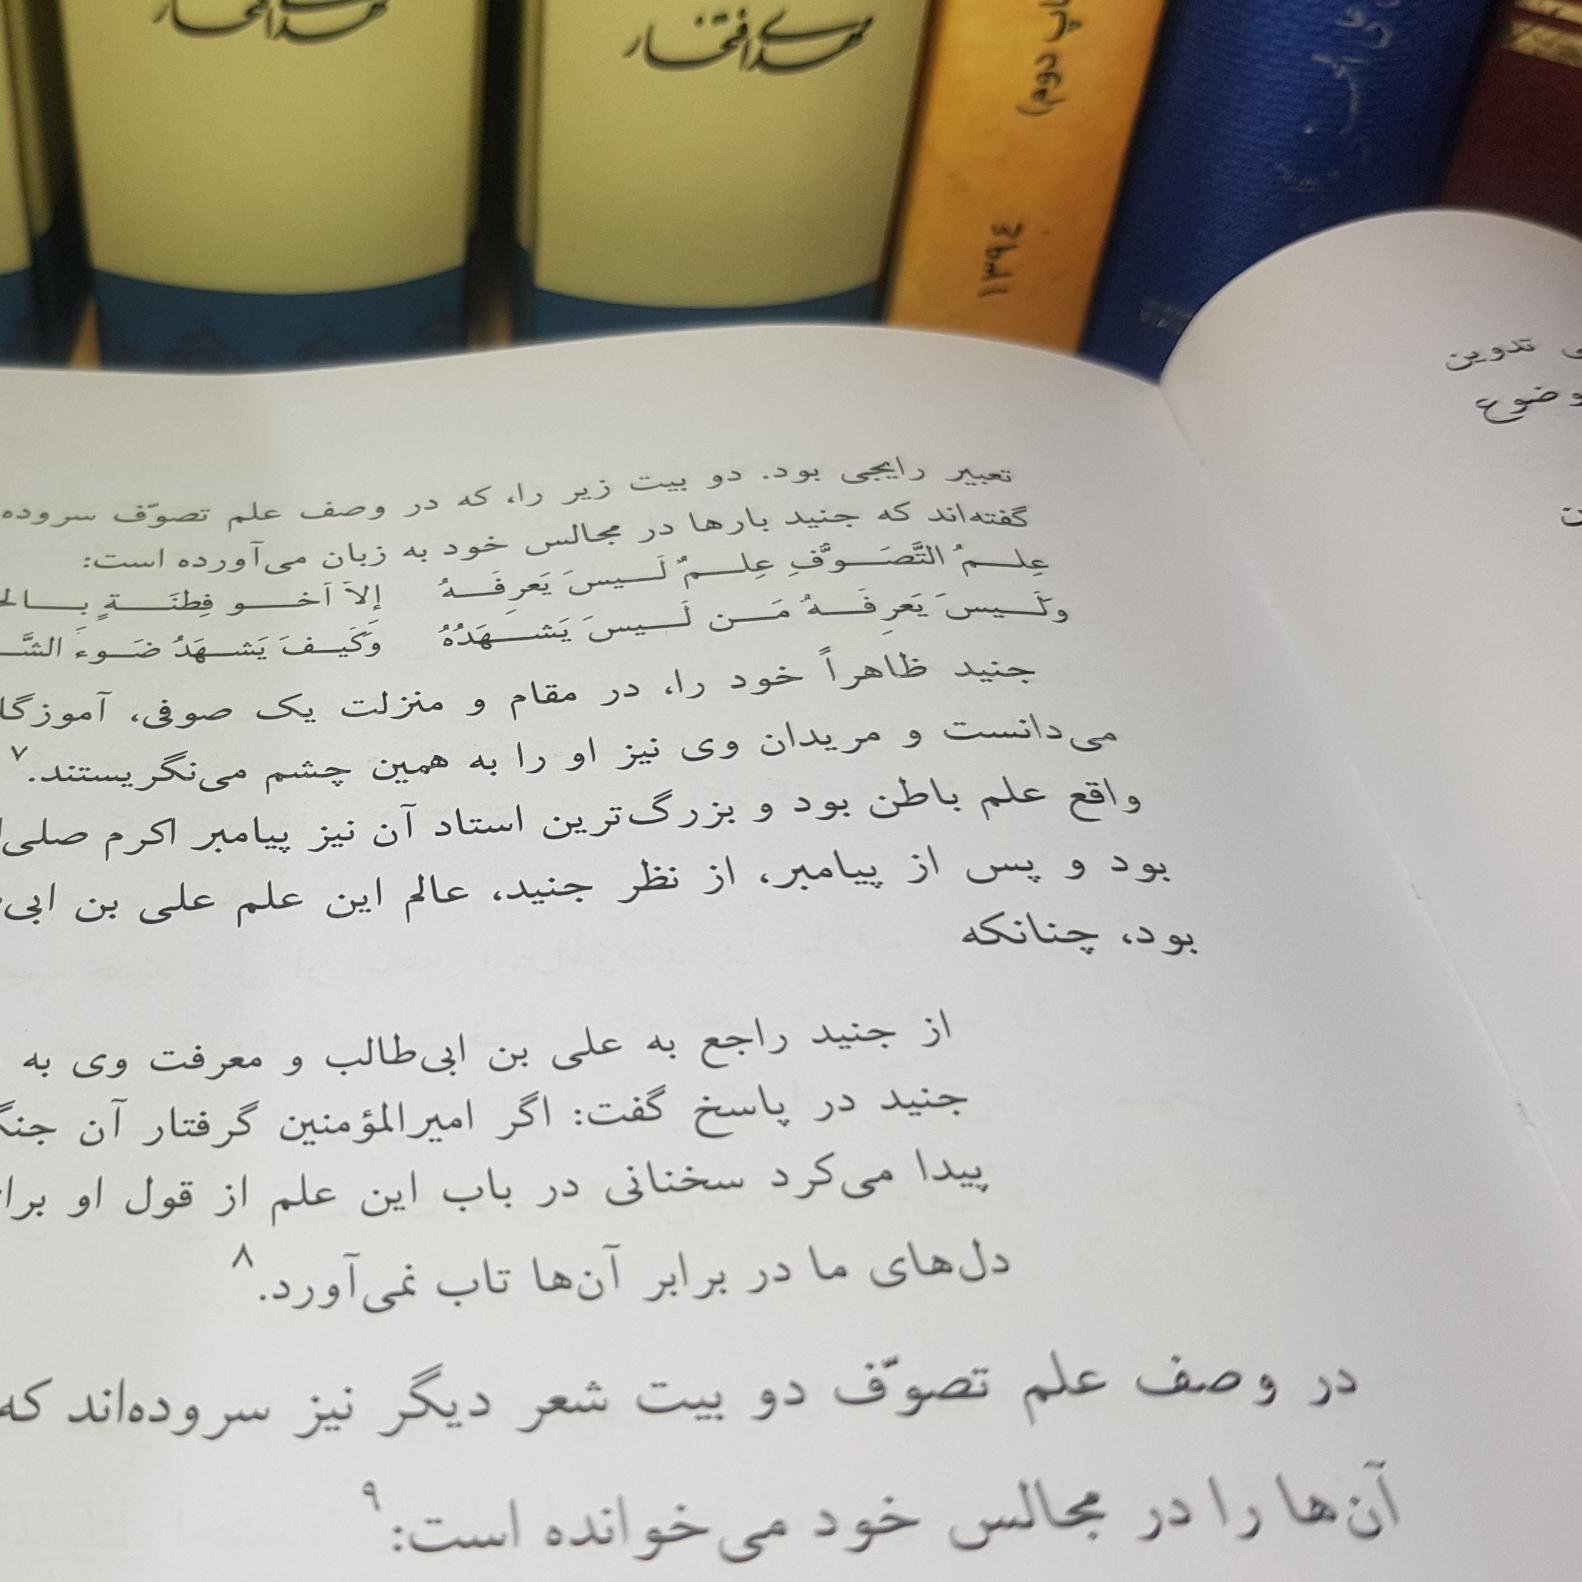 مهدی افتخار
مهدی افتخار
چاپ دوم)
۱۳۹٤
تدوین
تعبیر رایجی بود. دو بیت زیر را، که در وصف علم تصوّف سروده
گفته‌اند که جنید بارها در مجالس خود به زبان می‌آورده است:
عِلـمُ التَّصَـوُّفِ عِلـمٌ لَـیسَ یَعرِفُـهُ إلاّ أخـو فِطنَـةٍ
وَلَـیسَ یَعرِفُـهُ مَـن لَـیسَ یَشـهَدُهُ وَکَیـفَ یَشـهَدُ ضَـوءَ
جنید ظاهراً خود را، در مقام و منزلت یک صوفی،
می‌دانست و مریدان وی نیز او را به همین چشم می‌نگریستند.۷
واقع علم باطن بود و بزرگ‌ترین استاد آن نیز پیامبر اکرم
بود و پس از پیامبر، از نظر جنید، عالم این علم علی بن
بود، چنانکه
از جنید راجع به علی بن ابی‌طالب و معرفت وی به
جنید در پاسخ گفت: اگر امیرالمؤمنین گرفتار آن
پیدا می‌کرد سخنانی در باب این علم از قول او
دل‌های ما در برابر آن‌ها تاب نمی‌آورد.۸
در وصف علم تصوّف دو بیت شعر دیگر نیز سروده‌اند که
آن‌ها را در مجالس خود می‌خوانده است:۹